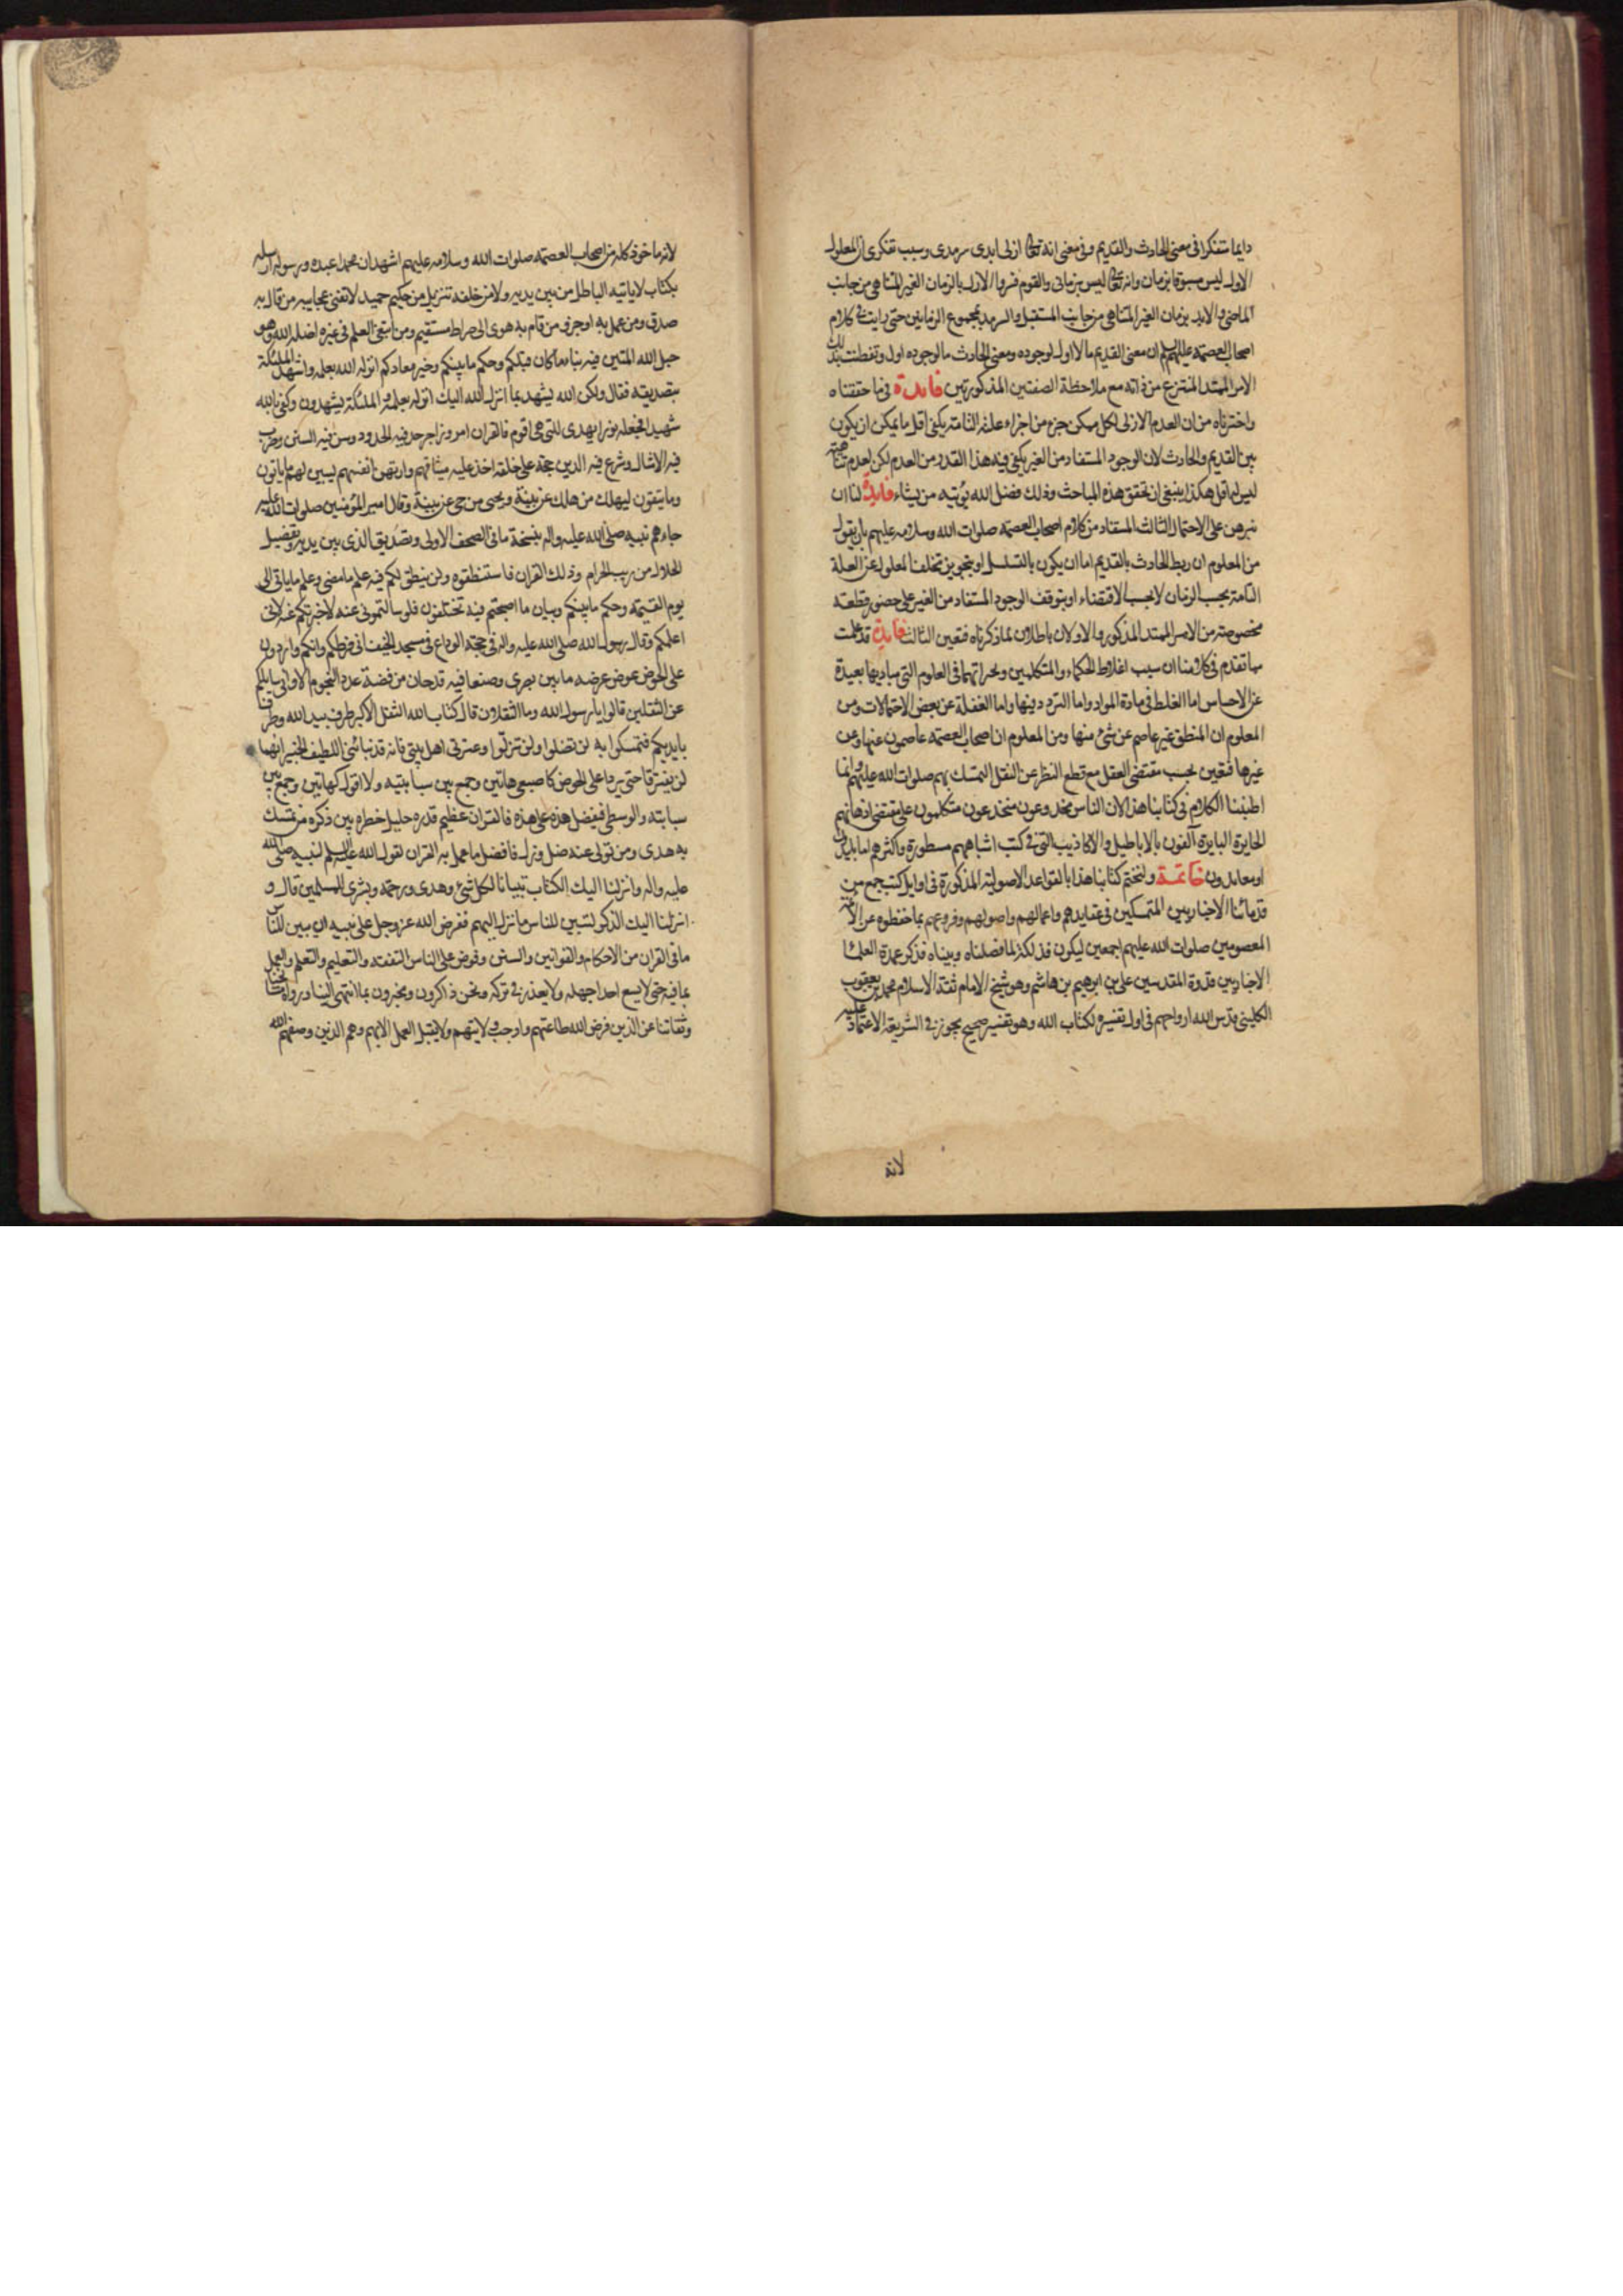 دايما متفكرا فى معنى الحادث والقديم وفى معنى انه تعالى ازلى ابدى سرمدى وسبب تفكرى ان المعلول
الاول ليس مسبوقا بزمان وانه تعالى ليس بزمانى والقوم فسروا الازل بالزمان الغير المتناهى من جانب
الماضى والابد بزمان الغير المتناهى من جانب المستقبل والسرمد بمجموع الزمانين حتى رايت فى كلام
اصحاب العصمة عليهم السلم ان معنى القديم ما لا اول لوجوده ومعنى الحادث ما لوجوده اول وتفطنت بذلك
الامر الممتد المنتزع من ذاته مع ملاحظة الصفتين المذكورتين فايدة فى ما حققناه
واخترناه من ان العدم الازلى لكل ممكن جزء من اجزاء علته التامة يكفى اقل ما يمكن ان يكون
بين القديم والحادث لان الوجود المستفاد من الغير يكفى فيه هذا القدر من العدم لكن لعدم تناهيه
ليس له اقل هكذا ينبغى ان تحقق هذه المباحث وذلك فضل الله يؤتيه من يشاء فايدة لنا ان
نبرهن على الاحتمال الثالث المستفاد من كلام اصحاب العصمة صلوات الله وسلامه عليهم بان يقول
من المعلوم ان ربط الحادث بالقديم اما ان يكون بالتسلسل او بتجويز تخلف المعلول عن العلة
التامة بحسب الزمان لا بحسب الاقتضاء او بتوقف الوجود المستفاد من الغير على حضور قطعة
مخصوصة من الامر الممتد المذكور والاولان باطلان لما ذكرناه فتعين الثالث فايدة قد علمت
مما تقدم فى كلامنا ان سبب اغلاط الحكماء والمتكلمين وحيراتهما فى العلوم التى مباديها بعيدة
عن الاحساس اما الغلط فى مادة المواد واما التردد فيها واما الغفلة عن بعض الاحتمالات ومن
المعلوم ان المنطق غير عاصم عن شئ منها ومن المعلوم ان اصحاب العصمة عاصمون عنها وعن
غيرها فتعين بحسب مقتضى العقل مع قطع النظر عن النقل التمسك بهم صلوات الله عليهم وانما
اطنبنا الكلام فى كتابنا هذا لان الناس مخدوعون منخدعون متكلمون على مقتضى اذهانهم
الحايرة البايرة آلفون بالاباطيل والاكاذيب التى فى كتب اشباههم مسطورة واكثرهم اما بليدون
او معاندون خاتمة ولنختم كتابنا هذا بالقواعد الاصولية المذكورة فى اوايل كتب جمع من
قدمائنا الاخباريين المتمسكين فى عقايدهم واعمالهم واصولهم وفروعهم بما حفظوه عن الائمة
المعصومين صلوات الله عليهم اجمعين ليكون فذلكة لما فصلناه وبيناه فذكر عمدة العلماء
الاخباريين قدوة المقدسين على بن ابرهيم بن هاشم وهو شيخ الامام ثقة الاسلام محمد بن يعقوب
الكلينى قدس الله ارواحهم فى اول تفسيره لكتاب الله وهو تفسير صحيح يجوز فى الشريعة الاعتماد عليه
لانه
لانه ماخوذ كله من اصحاب العصمة صلوات الله وسلامه عليهم اشهد ان محمدا عبده ورسوله ارسله
بكتاب لا ياتيه الباطل من بين يديه ولا من خلفه تنزيل من حكيم حميد لا تفنى عجايبه من قال به
صدق ومن عمل به اوجر ومن قام به هدى الى صراط مستقيم ومن ابتغى العلم فى غيره اضله الله وهو
حبل الله المتين فيه نبا ما كان قبلكم وحكم ما بينكم وخير معادكم انزله الله بعلمه واشهد الملئكة
بتصديقه فقال ولكن الله يشهد بما انزل الله اليك انزله بعلمه والملئكة يشهدون وكفى بالله
شهيدا فجعله نورا يهدى للتى هى اقوم فالقران امر وزاجر حد فيه الحدود وسن فيه السنن وضرب
فيه الامثال وشرع فيه الدين حجة على خلقه اخذ عليه ميثاقهم وارتهن انفسهم ليبين لهم ما ياتون
وما يتقون ليهلك من هلك عن بينة ويحيى من حى عن بينة وقال امير المؤمنين صلوات الله عليه
جاءهم نبيه صلى الله عليه واله بنسخة ما فى الصحف الاولى وتصديق الذى بين يديه وتفصيل
الحلال من ريب الحرام وذلك القران فاستنطقوه ولن ينطق لكم فيه علم ما مضى وعلم ما ياتى الى
يوم القيمة وحكم ما بينكم وبيان ما اصبحتم فيه تختلفون فلو سالتمونى عنه لاخبرتكم عنه لانى
اعلمكم وقال رسول الله صلى الله عليه واله فى حجة الوداع فى مسجد الخيف انى فرطكم وانكم واردون
على الحوض حوض عرضه ما بين بصرى وصنعا فيه قدحان من فضة عدد النجوم الا وانى سايلكم
عن الثقلين قالوا يا رسول الله وما الثقلان قال كتاب الله الثقل الاكبر طرف بيد الله وطرف
بايديكم فتمسكوا به لن تضلوا ولن تزلوا وعترتى اهل بيتى فانه قد نبانى اللطيف الخبير انهما
لن يفترقا حتى يردا على الحوض كاصبعى هاتين وجمع بين سبابتيه ولا اقول كهاتين وجمع بين
سبابته والوسطى فيفضل هذه على هذه فالقران عظيم قدره جليل خطره بين ذكره من تمسك
به هدى ومن تولى عنه ضل وزل فافضل ما عمل به القران لقول الله عز وجل لنبيه صلى الله
عليه واله وانزلنا اليك الكتاب تبيانا لكل شئ وهدى ورحمة وبشرى للمسلمين قال و
انزلنا اليك الذكر لتبين للناس ما نزل اليهم ففرض الله عز وجل على نبيه ان يبين للناس
ما فى القران من الاحكام والقوانين والسنن وفرض على الناس التفقه والتعليم والتعلم والعمل
بما فيه حتى لا يسع احدا جهله ولا يعذر فى تركه ونحن ذاكرون ومخبرون بما انتهى الينا ورواه مشايخنا
وثقاتنا عن الذين فرض الله طاعتهم واوجب ولايتهم ولا يقبل العمل الا بهم وهم الذين وصفهم الله